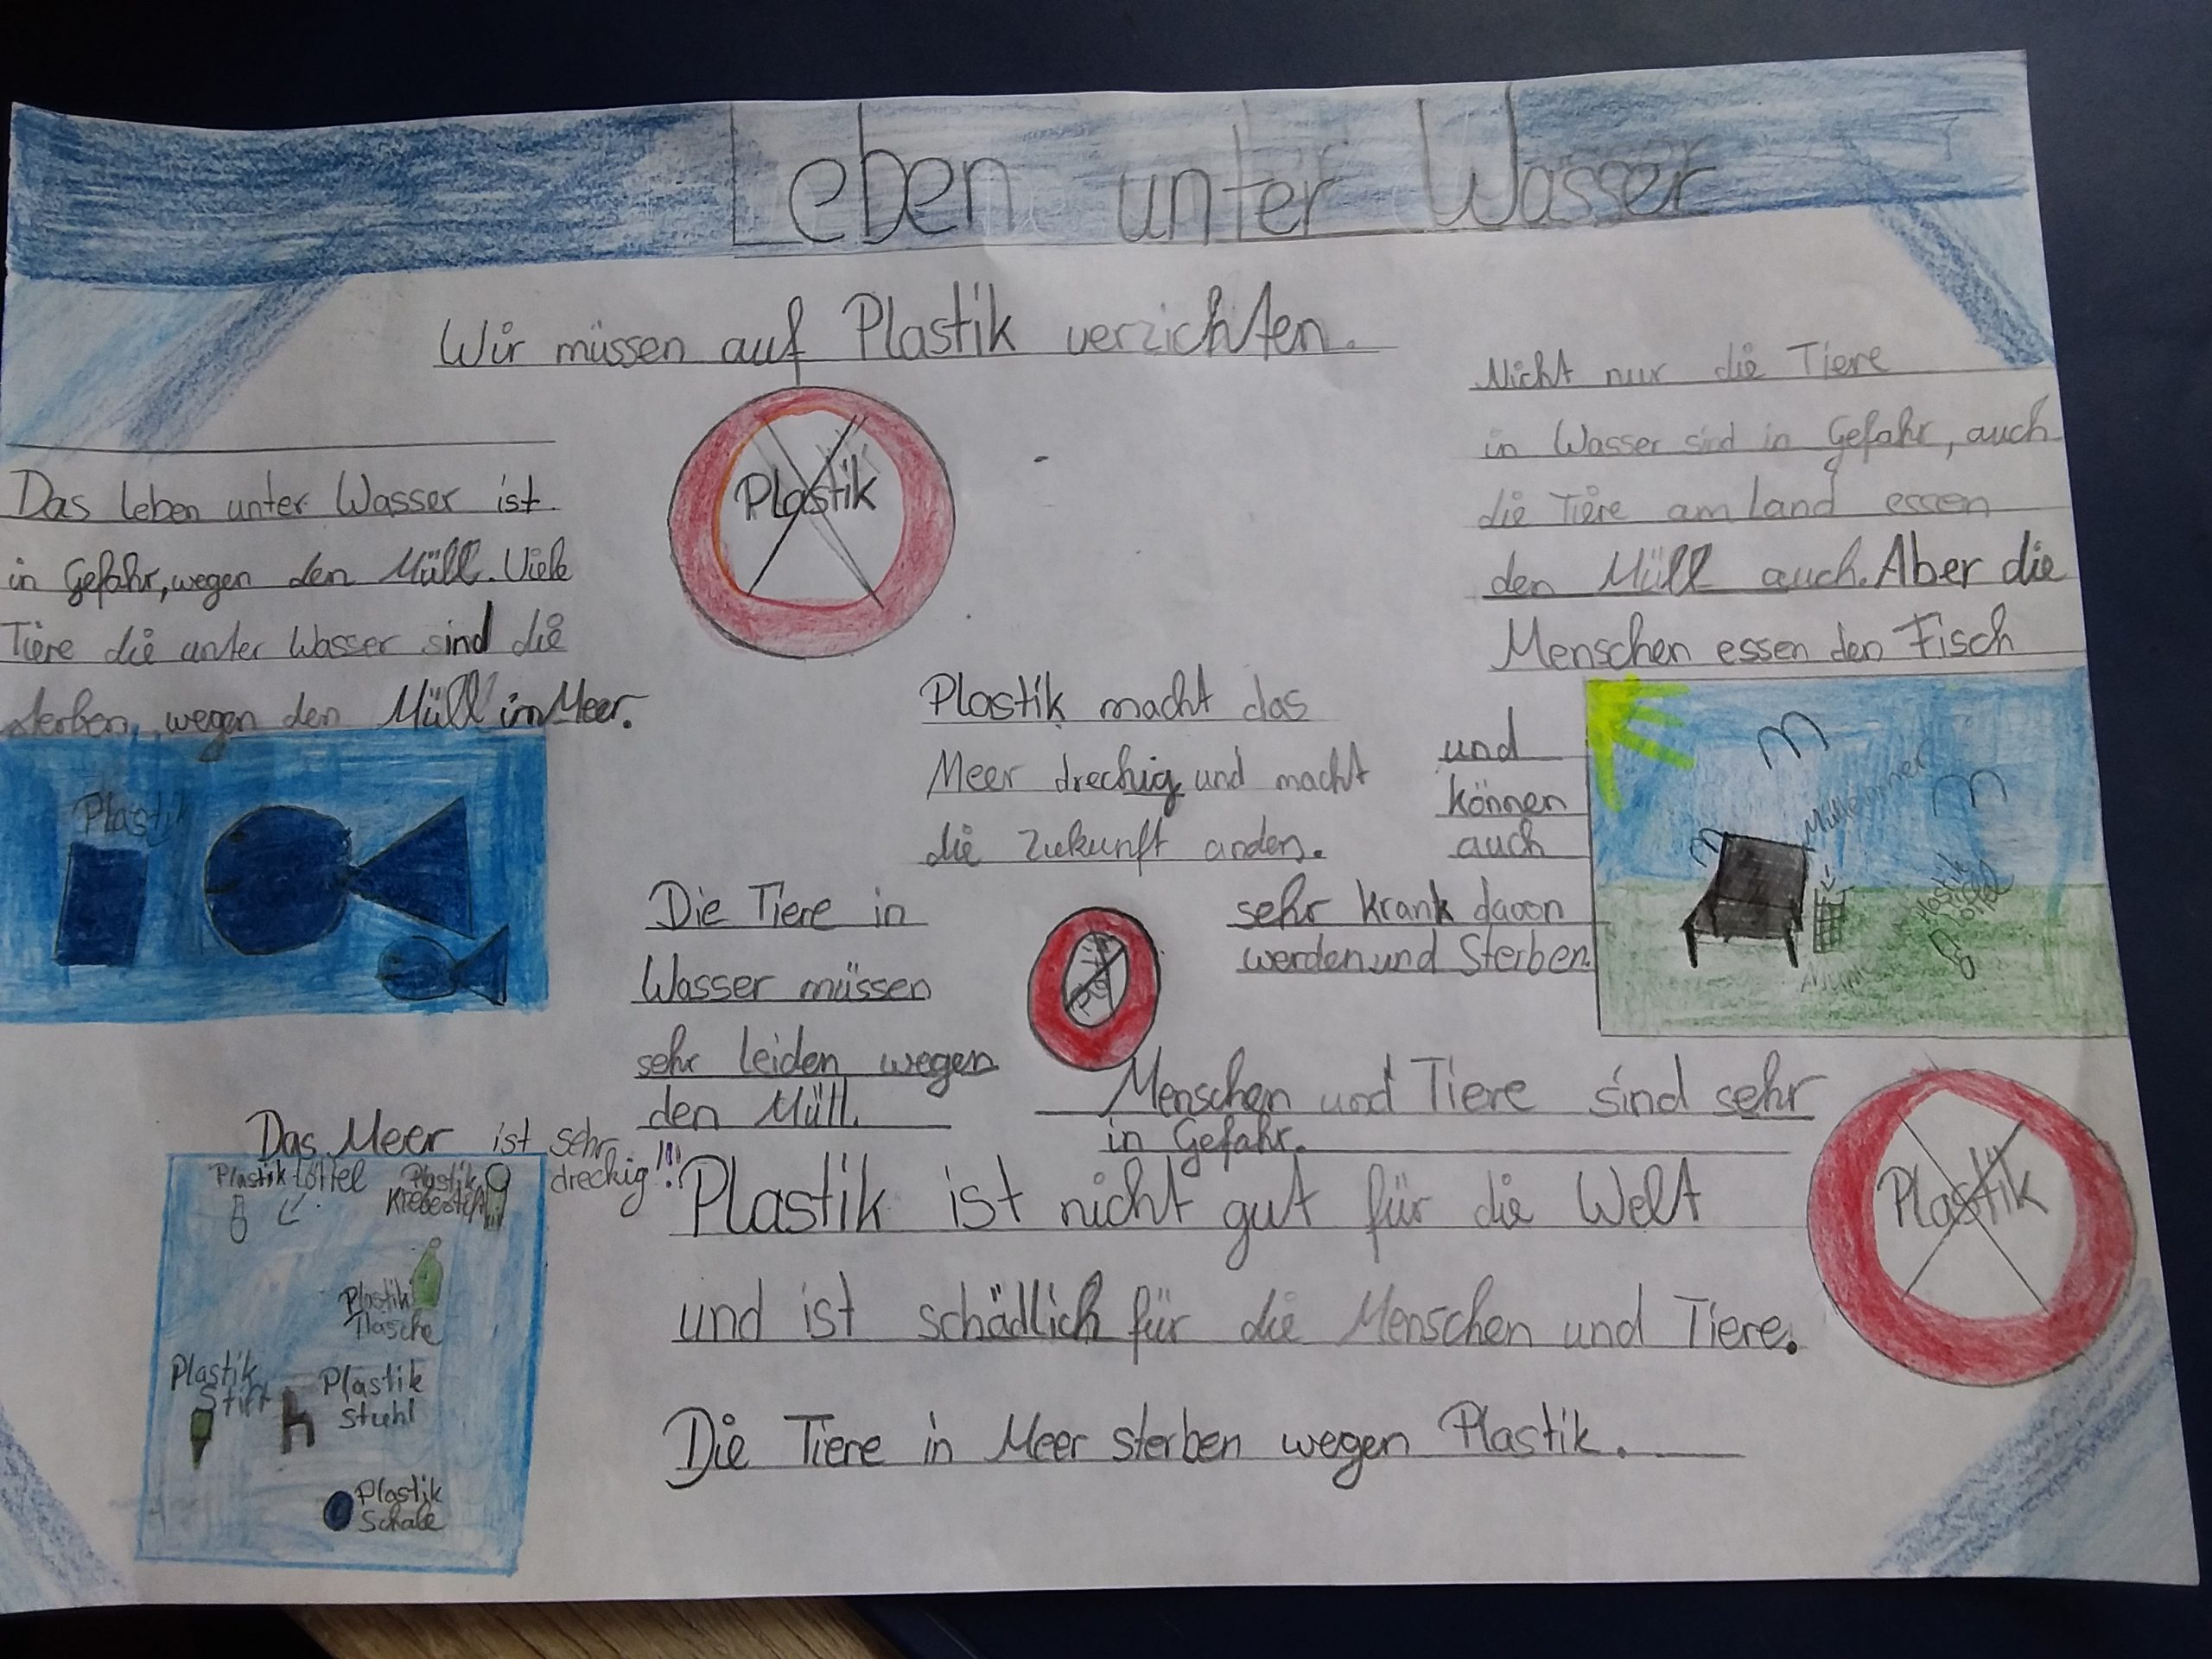 Leben unter Wasser
Wir müssen auf Plastik verzichten.
Plastik
Das Leben unter Wasser ist
in Gefahr, wegen den Müll. Viele
Tiere die unter Wasser sind die
sterben, wegen den Müll im Meer.
Plastik
Nicht nur die Tiere
in Wasser sind in Gefahr, auch
die Tiere am Land essen
den Müll auch. Aber die
Menschen essen den Fisch
und
können
auch
sehr krank davon
werden und Sterben.
Mülleimer
Plastik
Löffel
Plastik macht das
Meer dreckig und macht
die Zukunft anders.
Die Tiere in
Wasser müssen
sehr leiden wegen
den Müll.
Menschen und Tiere sind sehr
in Gefahr.
Plastik
Das Meer ist sehr
dreckig!!!
Plastik Löffel
Plastik
Plastik
Flasche
Plastik
Stift
Plastik
Stuhl
Plastik
Schale
Plastik ist nicht gut für die Welt
und ist schädlich für die Menschen und Tiere.
Die Tiere in Meer sterben wegen Plastik.